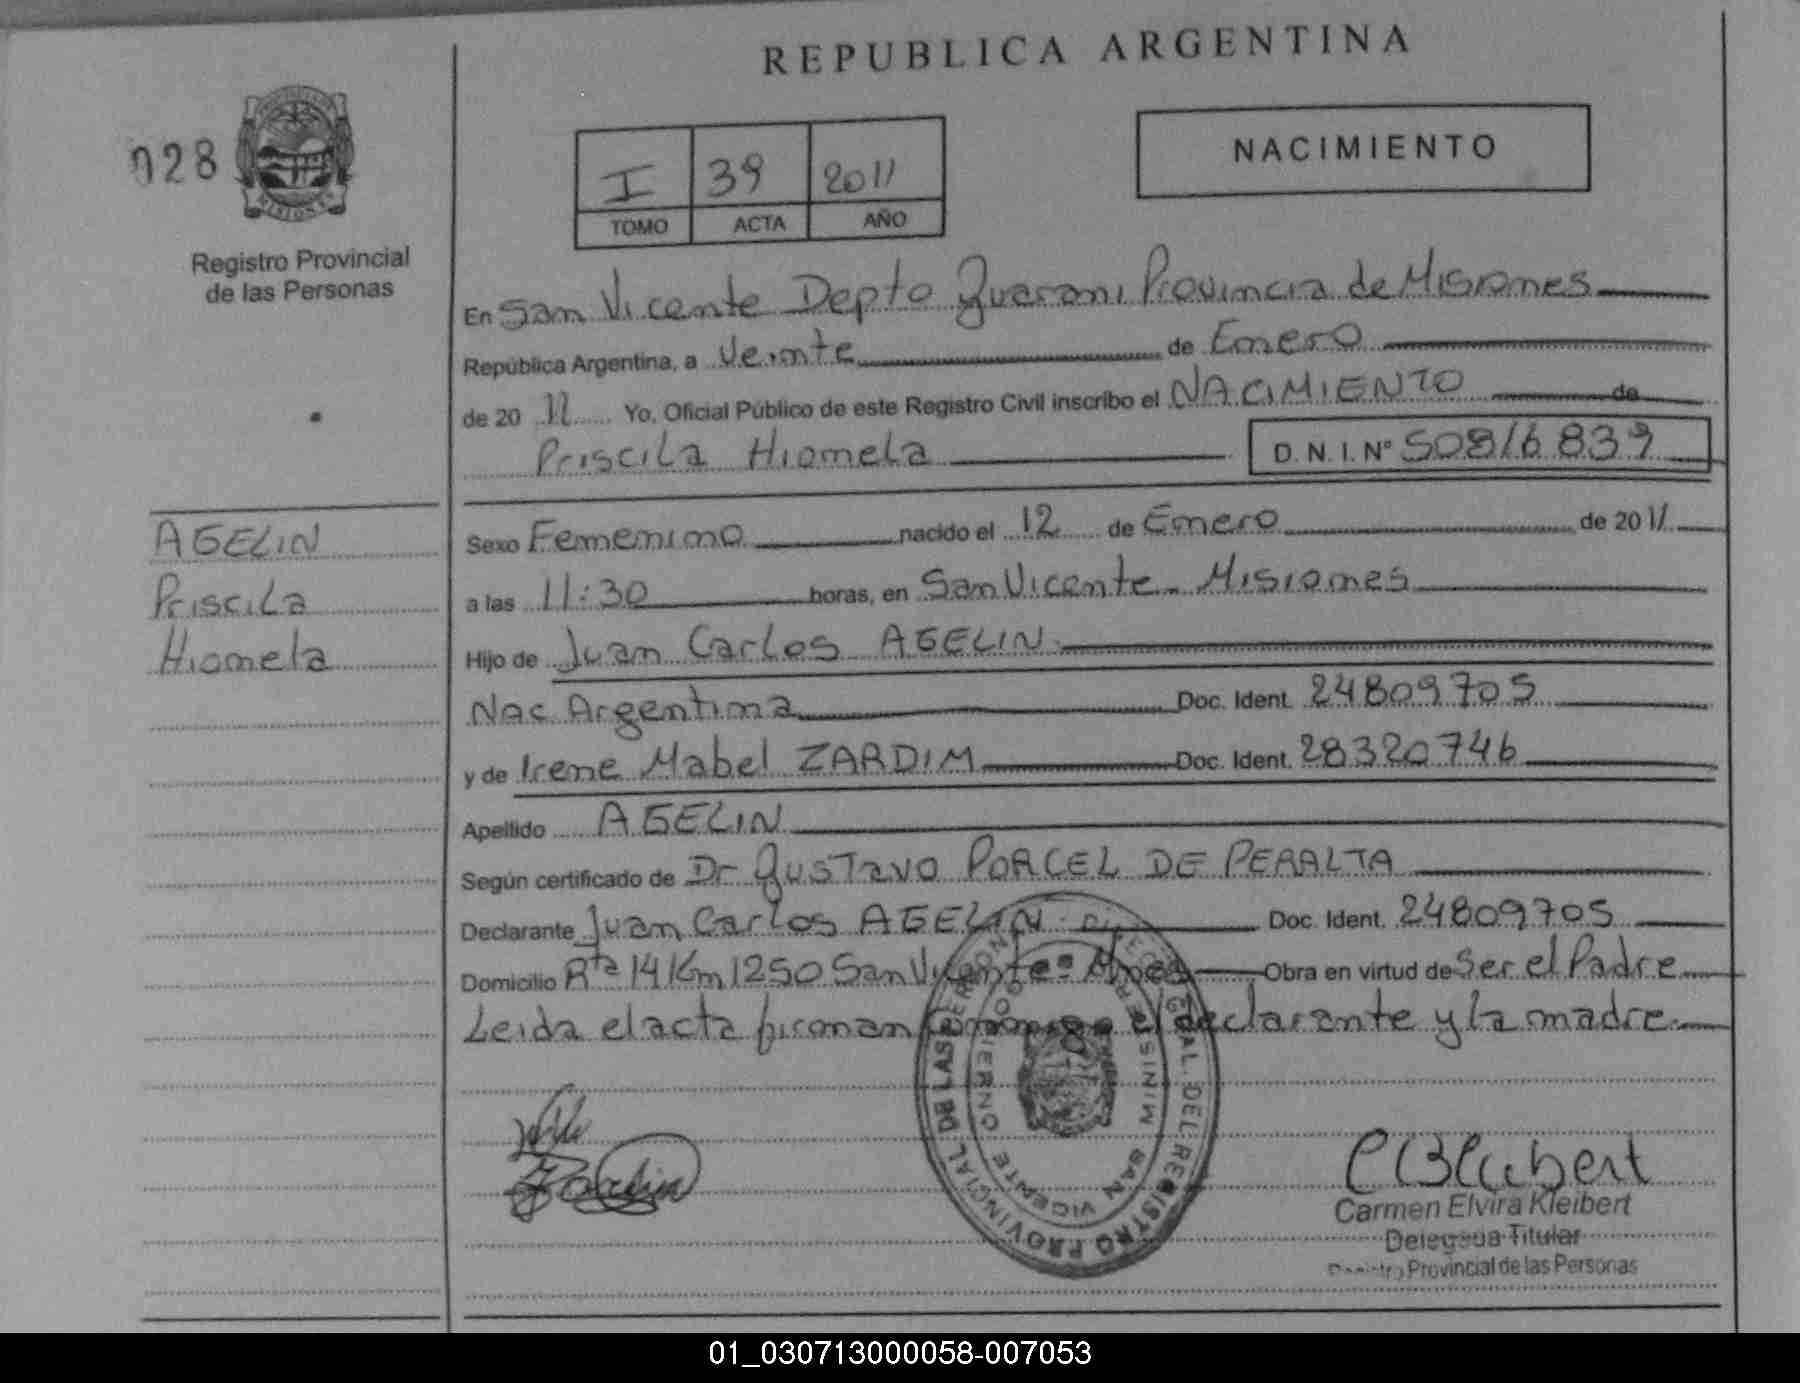 REPUBLICA ARGENTINA
028
NACIMIENTO
I 39 2011
TOMO ACTA AÑO
MISIONES
Registro Provincial
de las Personas
En San Vicente Depto Guarani Provincia de Misiones
República Argentina, a Veinte de Enero
de 20 11 Yo, Oficial Público de este Registro Civil inscribo el NACIMIENTO de
Priscila Hiomela D.N.I. Nº 50816839
AGELIN
Priscila
Hiomela
Sexo Femenino nacido el 12 de Enero de 2011
a las 11:30 horas, en San Vicente - Misiones
Hijo de Juan Carlos AGELIN
Nac Argentina Doc. Ident. 24809705
y de Irene Mabel ZARDIM Doc. Ident. 28320746
Apellido AGELIN
Según certificado de Dr GUSTAVO PORCEL DE PERALTA
Declarante Juan Carlos AGELIN Doc. Ident. 24809705
Domicilio Rta 14 Km 1250 San Vicente - Mnes Obra en virtud de Ser el Padre
Leida el acta firman conmigo el declarante y la madre
REGISTRO PROVINCIAL DE LAS PERSONAS
SAN VICENTE
Carmen Elvira Kleibert
Delegada Titular
Registro Provincial de las Personas
01_030713000058-007053